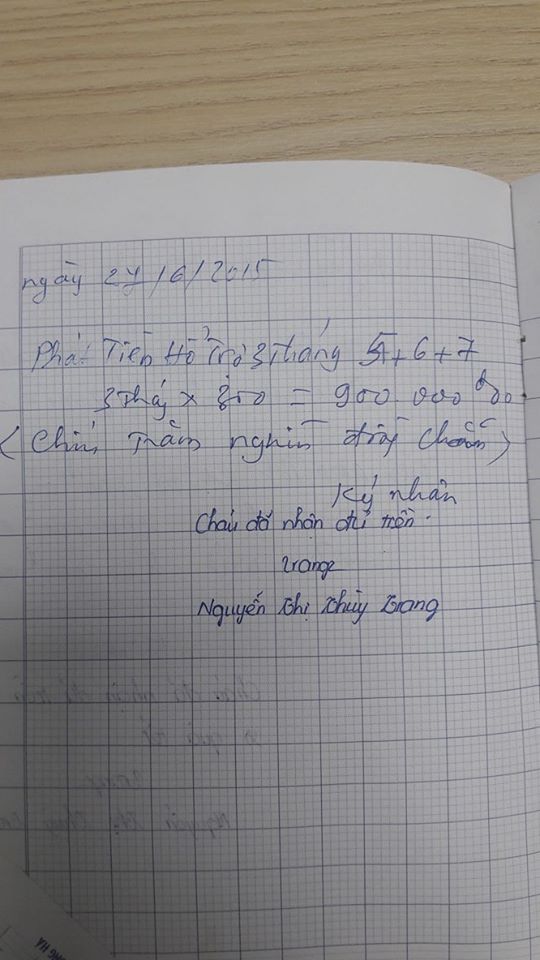 ngày 24/6/2015
Phát Tiền Hổ Trợ 3 tháng 5+6+7
3 tháng x 300 = 900.000
(Chín trăm nghìn đồng chẵn)
Ký nhân
Cháu đã nhận đủ tiền.
trang
Nguyễn Thị Thùy Trang
NG HÀ